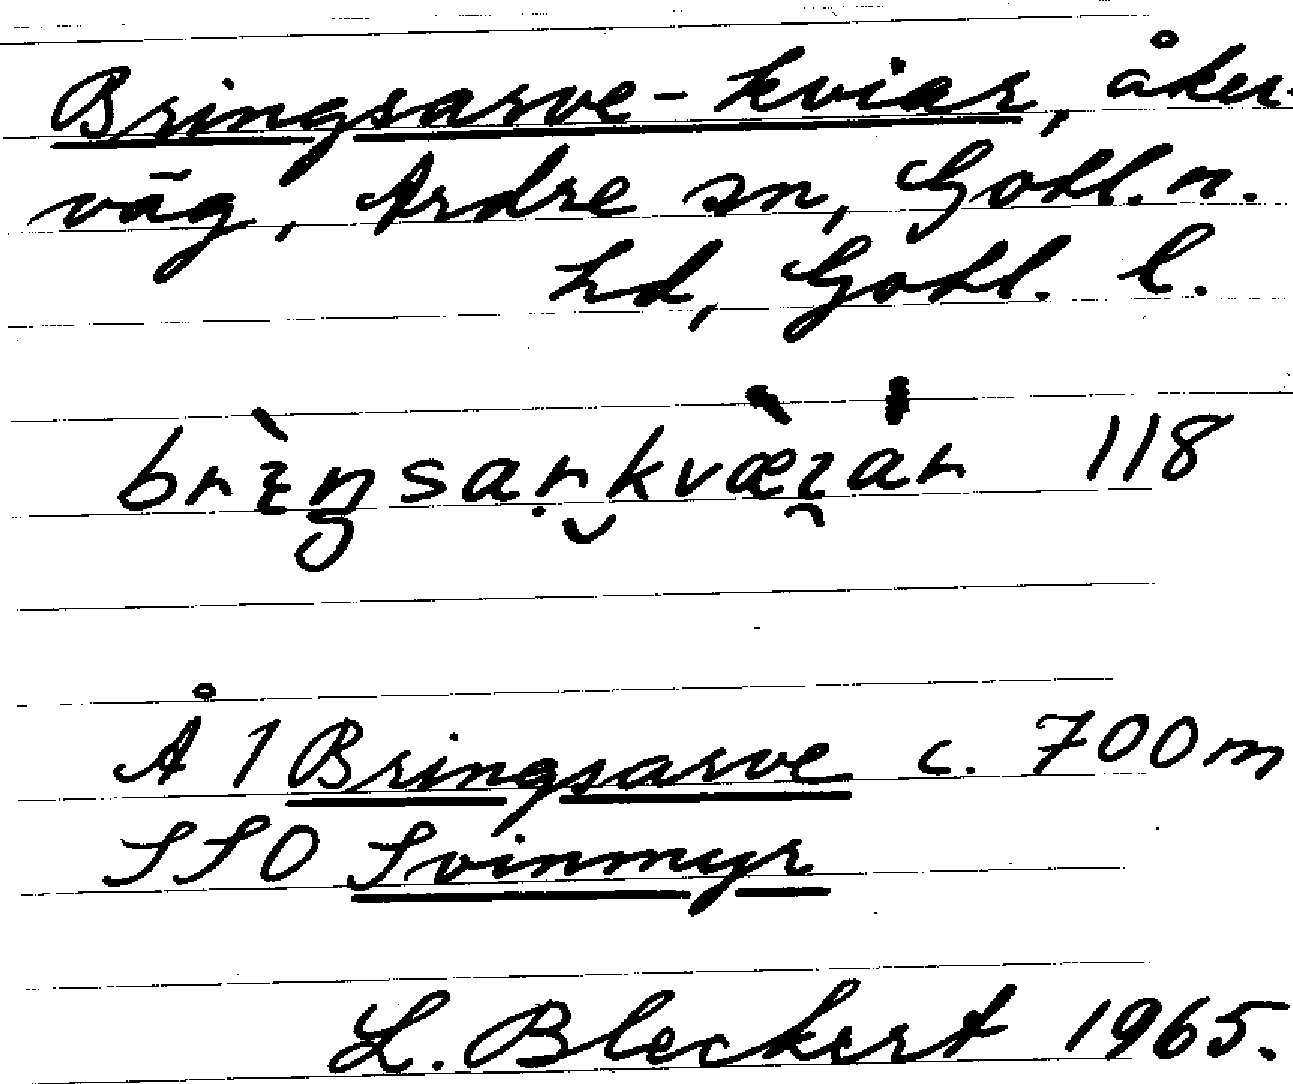 Bringsarve-kviar, åker-
väg, Ardre sn, Gotl. n.
hd, Gotl. l.
118
Å 1 Bringsarve c. 700 m
SSO Svinmyr
L. Bleckert 1965.